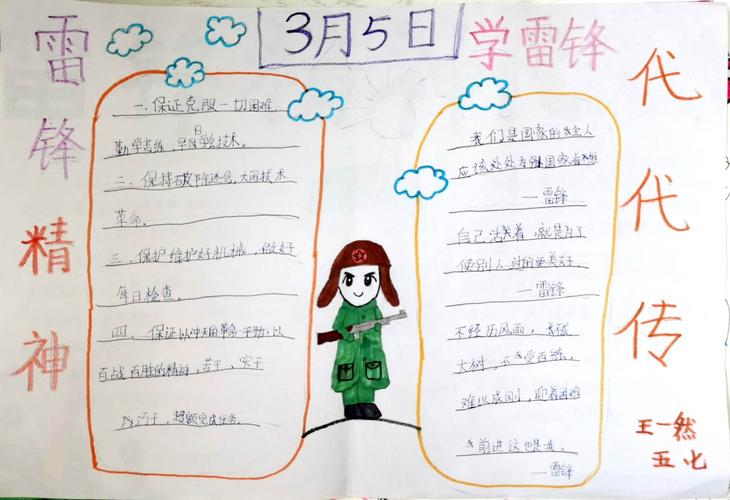 3月5日 学雷锋
雷锋精神
一.保证克服一切困难,
勤学苦练,早日学会技术。
二、保持破除迷信,大闹技术
革命。
三、保护维护好机械,做好
每日检查。
四、保证以冲天的革命干劲,以
百战百胜的精神,苦干、实干
巧干,超额完成任务。
我们是国家的主人
应该处处为国家着想
—雷锋
自己活着,就是为了
使别人过的更美好.
—雷锋
不经历风雨,长
大树,不受百练,
难以成刚,迎着困难
前进,这也是我。
—雷锋
代代传
王一然
五.七